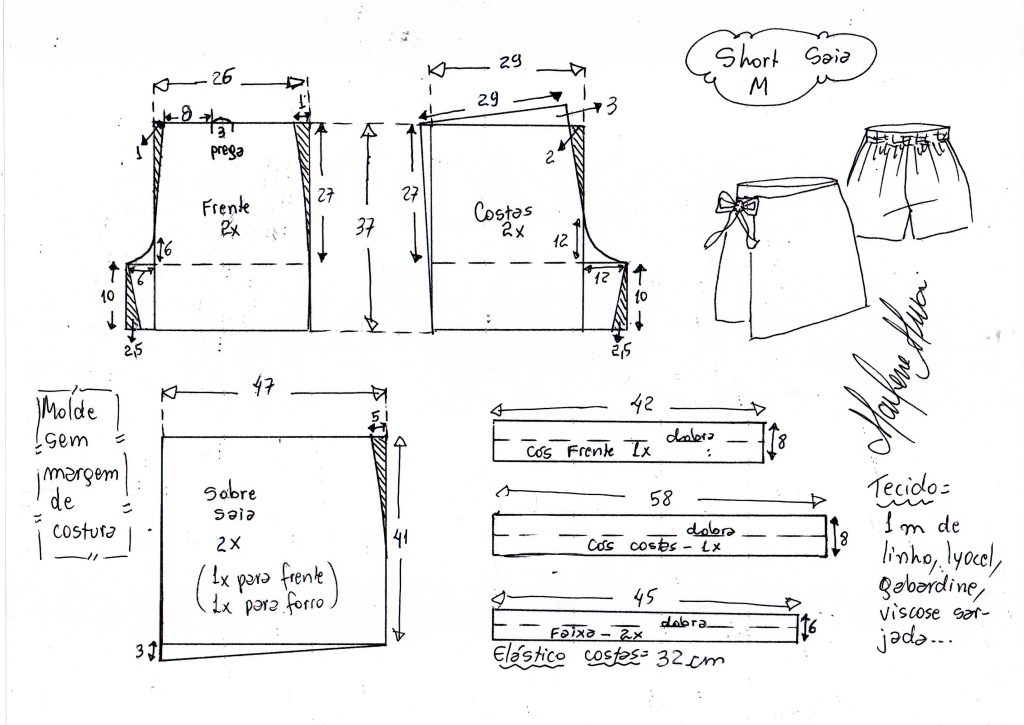 Short Saia
M
26
8
1
3
prega
1
Frente
2x
27
6
6
10
2,5
37
29
29
3
2
27
Costas
2x
12
12
10
2,5
47
5
Sobre
saia
2x
(1x para frente)
(1x para forro)
41
3
Molde
sem
margem
de
costura
42
dobra
Cos Frente 1x
8
58
dobra
Cos costas - 1x
8
45
dobra
Faixa - 2x
6
Elástico costas = 32 cm
Tecido =
1 m de
linho, lyocel,
gabardine,
viscose sar-
jada...